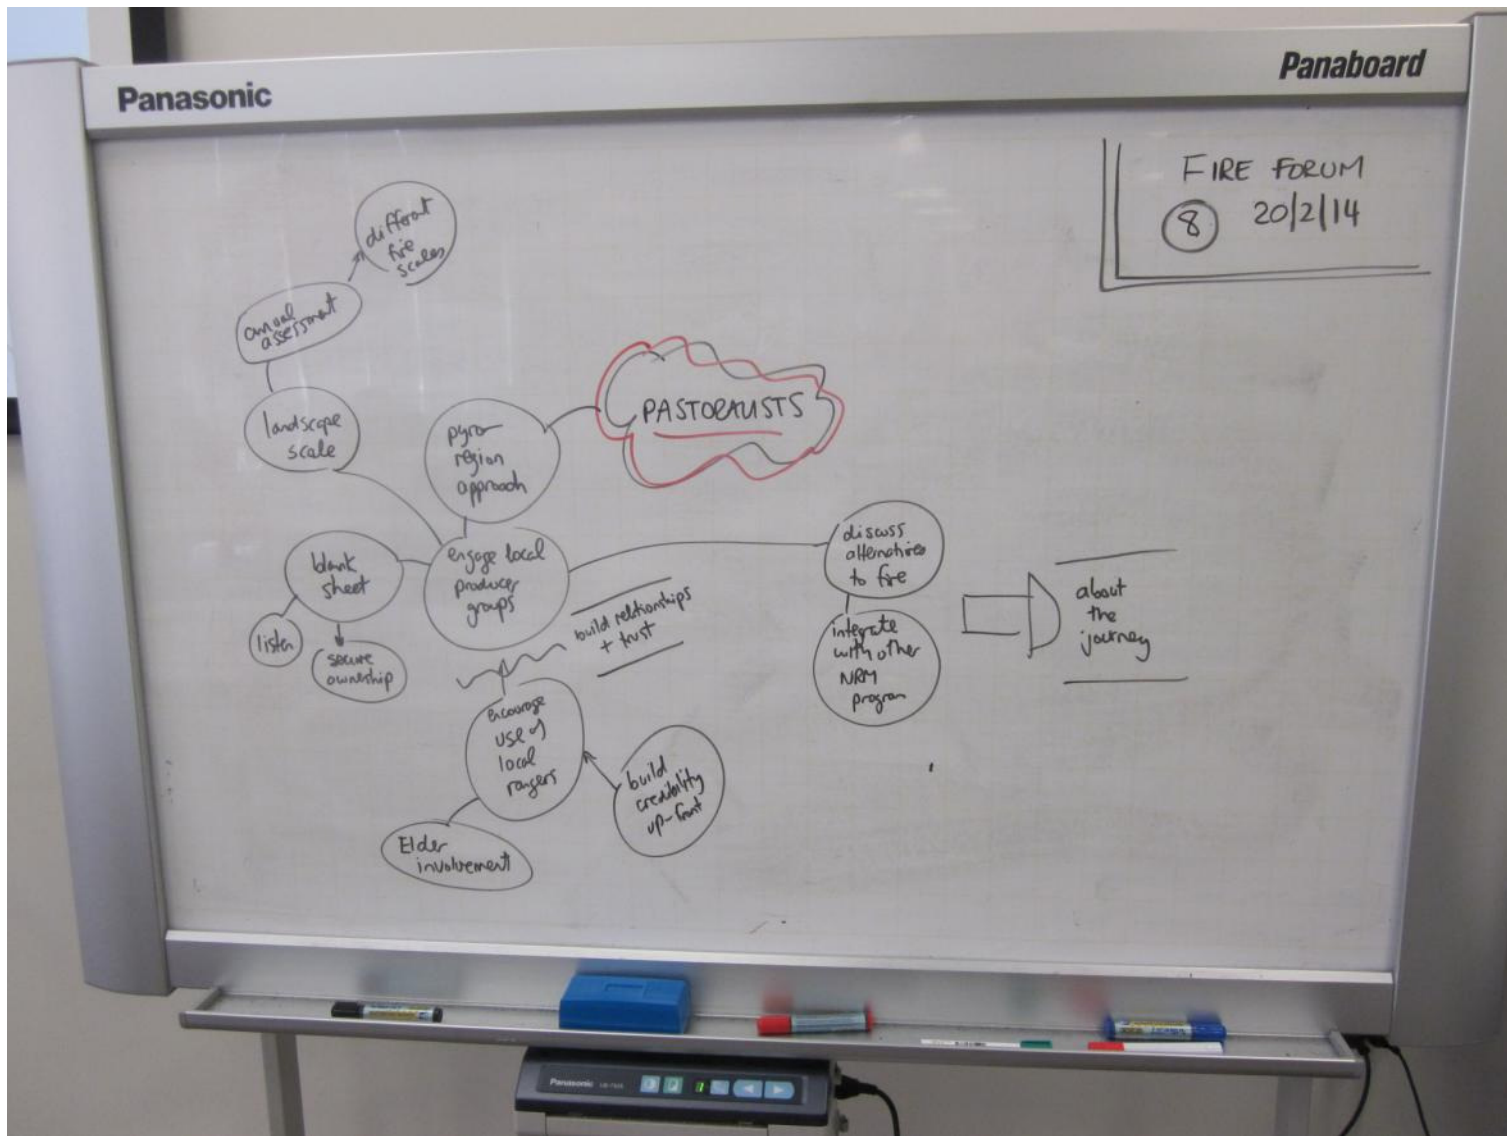 Panasonic
Panaboard
FIRE FORUM
8
20/2/14
different
fire
scales
annual
assessment
landscape
scale
pyro-
region
approach
PASTORALISTS
blank
sheet
listen
secure
ownership
engage local
producer
groups
build relationships
+ trust
discuss
alternatives
to fire
integrate
with other
NRM
program
about
the
journey
encourage
use of
local
rangers
build
credibility
up-front
Elder
involvement
Panasonic